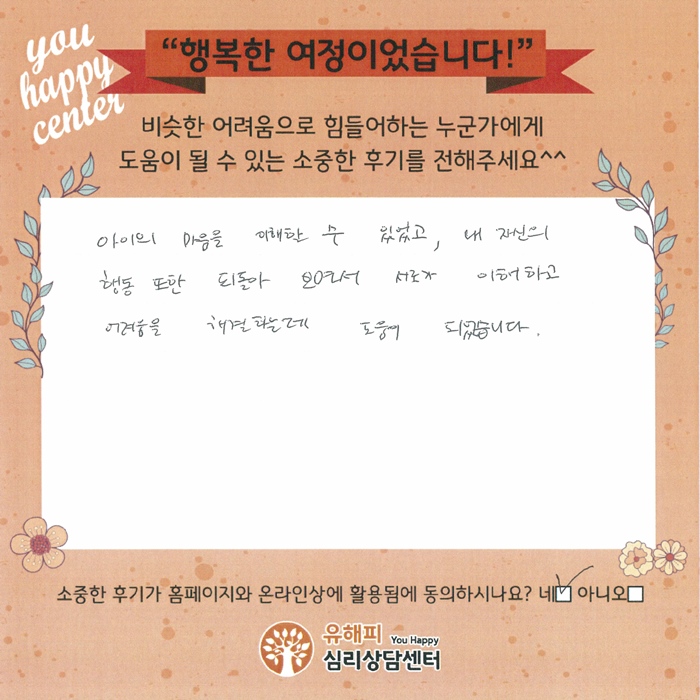 you
happy
center
“행복한 여정이었습니다!”
비슷한 어려움으로 힘들어하는 누군가에게
도움이 될 수 있는 소중한 후기를 전해주세요^^
아이의 마음을 이해할 수 있었고, 내 자신의
행동 또한 되돌아 보여서 서로가 이해하고
어려움을 해결하는데 도움이 되었습니다.
소중한 후기가 홈페이지와 온라인상에 활용됨에 동의하시나요? 네☑ 아니오☐
유해피 You Happy
심리상담센터